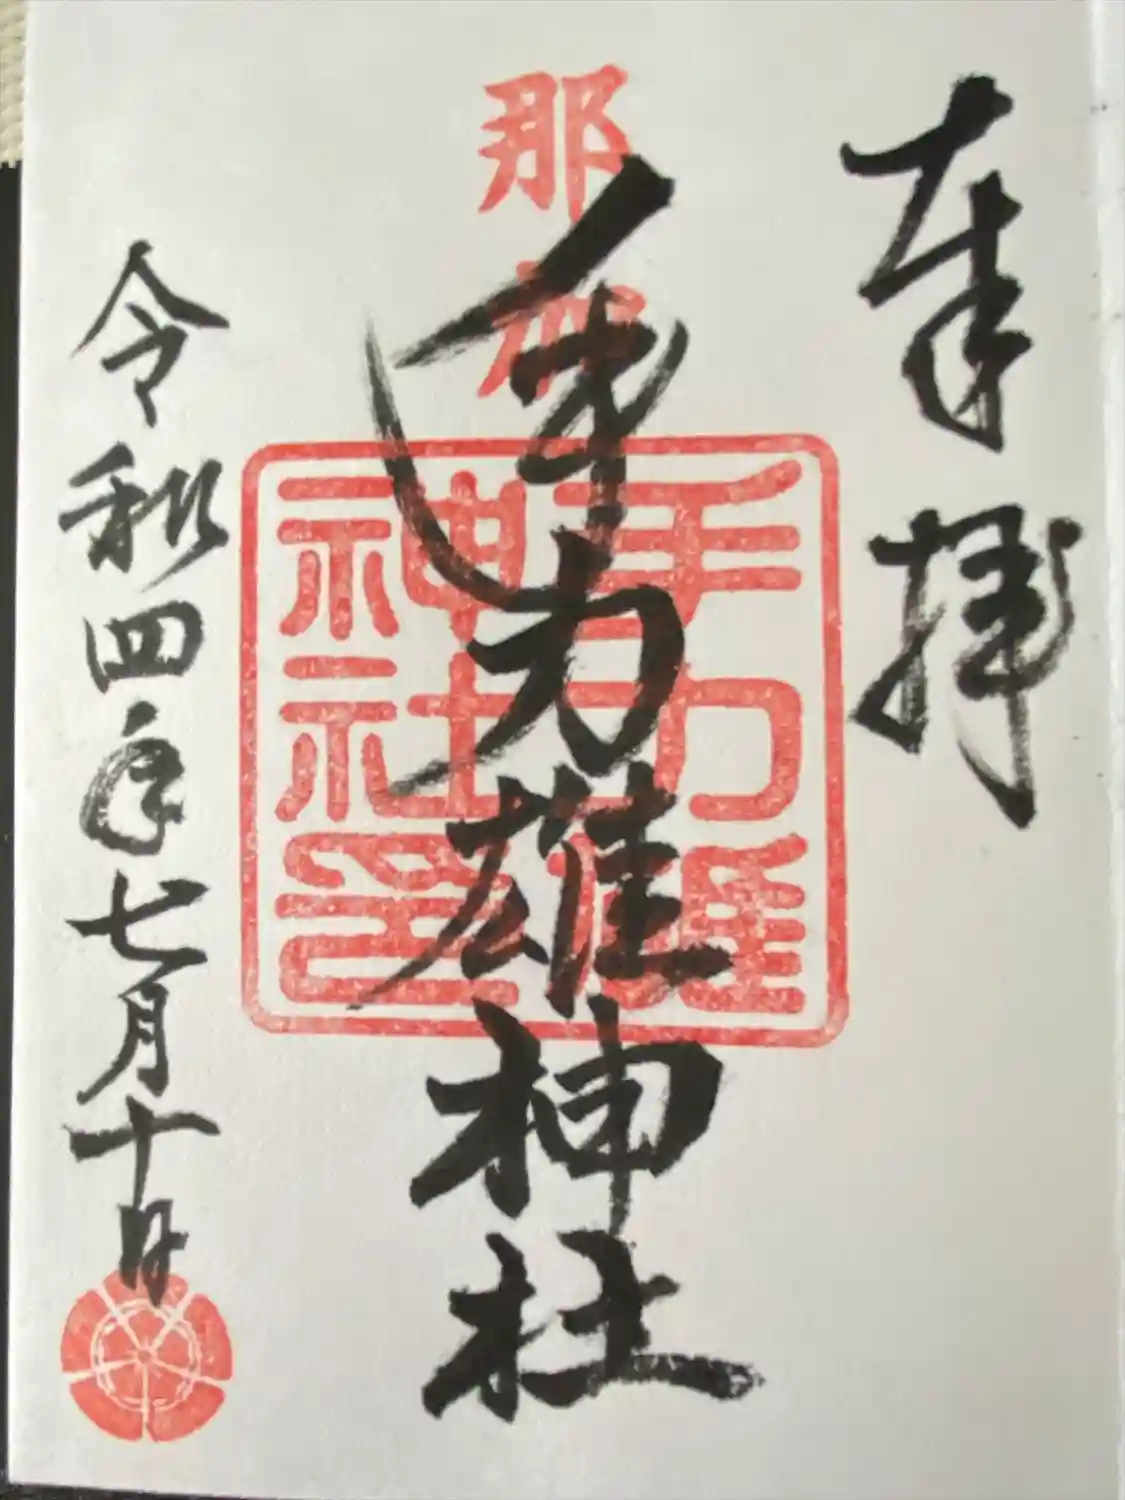 奉拝
那加
手力雄神社
手力雄
神社印
令和四年七月十日